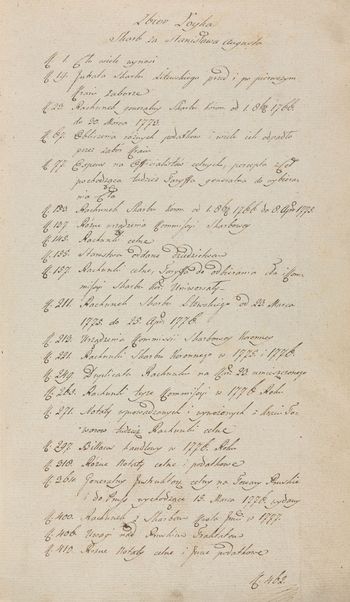 Zbior Łoyka
Skarb za Stanisława Augusta
K. 1. Cło wiele wynosi
K. 14. Intrata Skarbu Litewskiego przed i po pierwszym
Kraiu zaborze
K. 23. Rachunek generalny Skarbu Koron od 1. 8bra 1766.
do 20. Marca 1773.
K. 67. Obliczenia różnych podatków i wiele ich odpadło
przez zabór Kraiu
K. 77. Expens na Officialistów celnych, percepta z Ceł
pochodząca tudzież Taryffa generalna do wybiera-
nia Cła
K. 133. Rachunek Skarbu Koron od 1. 8bra 1766 do 8. Apr. 1775.
K. 137. Różne urządzenia Kommissyi Skarbowey
K. 145. Rachunki celne
K. 155. Starostwa oddane Dziedzictwem
K. 157. Rachunki celne, Taryffa do odbierania Cła Kom-
missyi Skarbu Kor. Uniwersały
K. 211. Rachunek Skarbu Litewskiego od 23. Marca
1775. do 25. Apr. 1776.
K. 213. Urządzenia Kommissii Skarbowey Koronney
K. 221. Rachunki Skarbu Koronnego w 1775 i 1776.
K. 249. Duplicata Rachunku na K. 23. umieszczonego
K. 265. Rachunki teyże Kommissyi w 1776. Roku
K. 271. Notaty wprowadzonych i wywożonych z kraiu To-
warow tudzież Rachunki celne
K. 297. Billans handlowy w 1776. Roku
K. 318. Różne Notaty celne i podatkowe
K. 364. Generalny Instruktarz celny na Towary Pruskie
i do Prus wychodzące 15. Marca 1776. wydany
K. 400. Rachunek z Skarbow w 1777.
K. 406. Uwagi nad Pruskim Traktatem
K. 415. Różne Notaty celne i Inne podatkowe
K. 462.